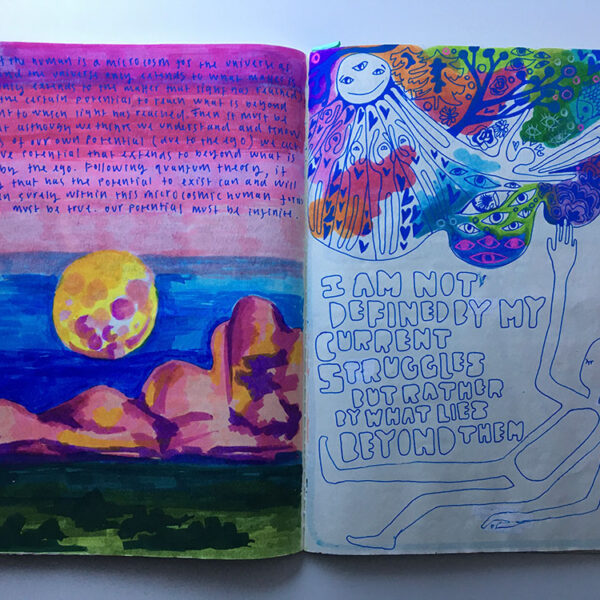 the human is a microcosm for the universe as
and the universe only extends to what
only extends to the matter that light has reached
the certain potential to reach what is beyond
to which light has reached. Then it must be
that although we think we understand and know
of our own potential (due to the ego) we
have potential that extends to beyond what is
by the ego. Following quantum theory, if
that has the potential to exist can and will
surely within this microcosmic human
must be true. our potential must be infinite.
I AM NOT
DEFINED BY MY
CURRENT
STRUGGLES
BUT RATHER
BY WHAT LIES
BEYOND THEM